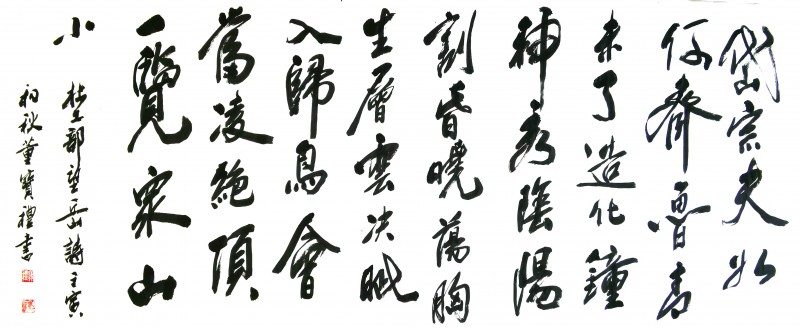 岱宗夫如
何齊魯青
未了造化鐘
神秀陰陽
割昏曉蕩胸
生層雲决眦
入歸鳥會
當凌絶頂
一覽衆山
小
杜工部望岳詩壬寅
初秋董寶禮書